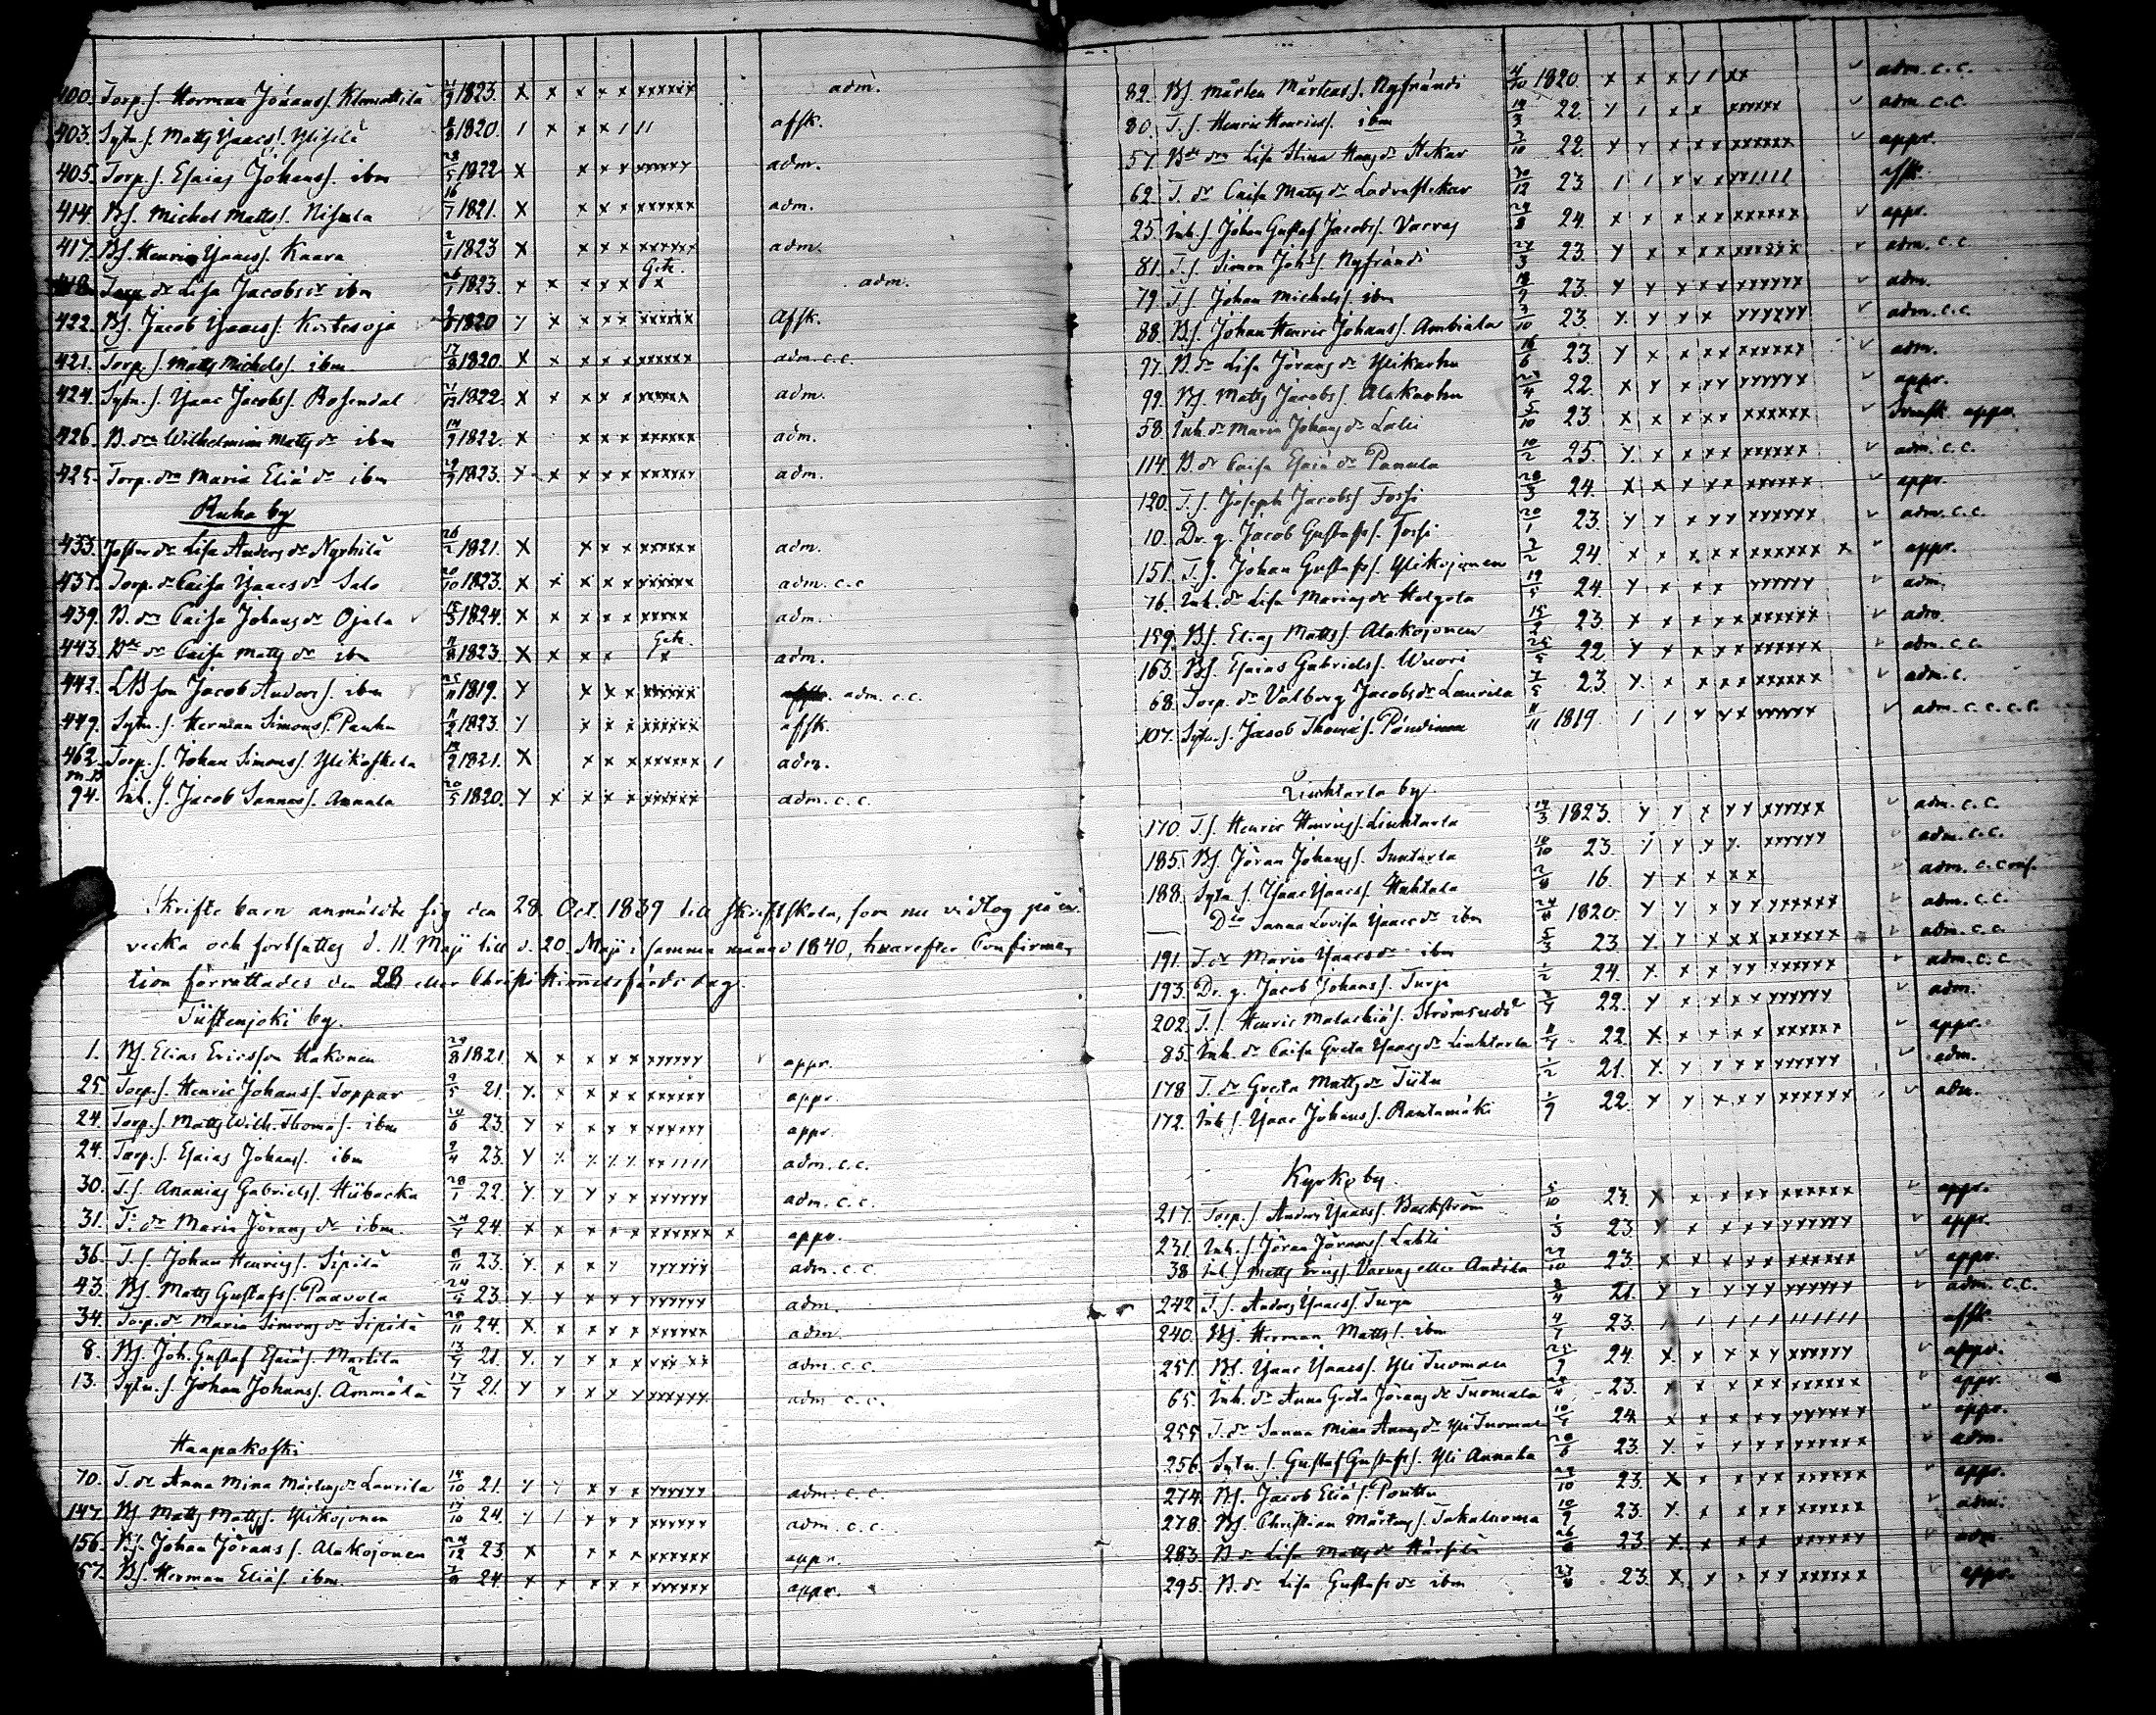 400. Torp. s. Herman Jöranss. Klemettilä 1823. x x x x x xxxxxx adm.
403. Sytn. s. Matts Isaacs s. Ylisilä 1820. 1 x x x 1 11 afsk.
405. Torp. s. Esaias Johanss. ibm 28/5 1822 x x x x xxxxxx adm.
414. Bs. Michel Mattss. Nisula 16/7 1821. x x x x xxxxxx adm.
417. Bs. Henric Isaacs s. Kaara 2/1 1823 x x x x xxxxxx adm.
418. Torp. dr Lisa Jacobsdr ibm 26/1 1823. x x x x x Getz. x adm.
422. Bs. Jacob Isaacs s. Kortesoja 1820 x x x x x xxxxxx Afsk.
421. Torp. s. Matts Michelss. ibm 17/8 1820. x x x x x xxxxxx adm. c.c.
424. Sytn. s. Isaac Jacobss. Rosendal 1822 x x x x x xxxxxx adm.
426. B. dr Wilhelmina Mattsdr ibm 14/9 1822. x x x x xxxxxx adm.
425. Torp. dr Maria Eliædr ibm 29/9 1823. x x x x x xxxxxx adm.
Ruha by
433. Joster dr Lisa Andersdr Nyrhilä 26/2 1821. x x x x xxxxxx adm.
437. Torp. dr Caisa Isaacsdr Salo 20/10 1823. x x x x x xxxxxx adm. c.c
439. B. dr Caisa Johansdr Ojala 1824. x x x x x xxxxx adm.
443. Bde dr Caisa Mattsdr ibm 1823. x x x x Getz. x adm.
442. LB son Jacob Anderss. ibm 25/11 1819. x x x x xxxxxx adm. c.c.
449. Sytn. s. Herman Simonss. Panhu 1823. x x x x xxxxxx afsk.
462. Torp. s. Johan Simonss. Ylikoskela 1821. x x x x xxxxxx 1 adm.
94. Inh. s. Jacob Sannas s. Annala 20/5 1820. x x x x x xxxxxx adm. c.c.
Skrifte barn anmälde sig den 28. Oct. 1839 till skriftskola, som nu vidtog på en
vecka och fortsattes d. 11. Maji till d. 20. Maji i samma månad 1840, hvarefter Confirma,
tion förrättades den 28 eller Christi Himmelsfärds dag.
Tiistenjoki by.
1. Bs. Elias Ericsson Hakonen 29/8 1821. x x x x x xxxxxx appr.
25. Torp. s. Henric Johanss. Toppar 9/5 21. x x x x x xxxxxx appr.
24. Torp. s. Matts Wilh. Thomæs. ibm 20/6 23. x x x x x xxxxxx appr.
24. Torp. s. Esaias Johanss. ibm 2/4 23. x x x x x xx1111 adm. c.c.
30. T. s. Ananias Gabrielss. Hübacka 28/1 22. x x x x x xxxxxx adm. c.c.
31. T. dr Maria Jöransdr ibm. 24. x x x x x xxxxxx x appr.
36. T. s. Johan Henricss. Sipilä 23. x x x x xxxxxx adm. c.c.
43. Bs. Matts Gustafss. Paavola 24/5 23 x x x x x xxxxxx adm.
34. Torp. dr Maria Simonsdr Sipilä 20/11 24. x x x x x xxxxxx adm.
8. Bs. Joh. Gustaf Esaiæs. Martila 13/9 21. x x x x x xxxxxx adm. c.c.
13. Sytn. s. Johan Johanss. Ämmälä 17/7 21. x x x x x xxxxxx adm. c.c.
Haapakoski
70. T. dr Anna Mina Mårtensdr Laurila 18/10 21. x x x x x xxxxxx adm. c.c.
147. Bs Matts Mattss. Ylikojonen 17/10 24. x 1 x x x xxxxxx adm. c.c.
156. Bs. Johan Jöranss. Alakojonen 24/12 23 x x x x xxxxxx appr.
57. Bs. Herman Eliæs. ibm. 24. x x x x x xxxxxx appr.
82. Bs Mårten Mårtenss. Nyfrändi 4/10 1820. x x x 1 1 xx adm. c.c.
80. T. s. Henric Henricss. ibm 19/3 22. x 1 x x xxxxxx adm. c.c.
57. Bde dr Lisa Stina Hansdr Stekar 2/10 22. x x x x x xxxxxx appr.
62. T. dr Caisa Mattsdr Ladvastekar 30/12 23. 1 1 x x x xx1111 afsk.
25. Inh. s. Johan Gustaf Jacobss. Varras 24/8 24. x x x x x xxxxxx appr.
81. T. s. Simon Joh. s. Nyfrändi 27/3 23. x x x x x xxxxxx adm. c.c.
79. T. s. Johan Michelss. ibm 18/9 23. x x x x x xxxxxx adm.
88. Bs. Johan Henric Johanss. Ambiala 3/10 23. x x x x xxxxxx adm. c.c.
97. B. dr Lisa Jöransdr Ylikarhu 16/6 23. x x x x x xxxxxx adm.
99. Bs. Matts Jacobss. Alakarhu 22. x x x x x xxxxxx appr.
58. Inh. dr Maria Johansdr Lahi 5/10 23. x x x x x xxxxxx Svensk appr.
114. B. dr Caisa Esaiædr Panula 10/2 25. x x x x x xxxxxx adm. c.c.
120. T. s. Joseph Jacobss. Fossi 28/3 24. x x x x x xxxxxx appr.
10. Dr. g. Jacob Gustafss. Fossi 20/1 23. x x x x x xxxxxx adm. c.c.
151. T. s. Johan Gustafss. Ylikojonen 2/2 24. x x x x x xxxxxx x appr.
76. Inh. dr Lisa Mariasdr Helgola 19/5 24. x x x x xxxxxx adm.
159. Bs. Elias Mattss. Alakojonen 15/2 23 x x x x x xxxxxx adm.
163. Bs. Esaias Gabrielss. Wuori 25/5 22. x x x x x xxxxxx adm. c.c.
68. Torp. dr Valborg Jacobsdr Laurila 7/5 23. x x x x x xxxxxx adm. c.
107. Sytn. s. Jacob Thomæs. Pöndinen 11/11 1819. 1 1 x x x xxxxxx adm. c.c.c.c.
Liuhtarla by.
170. T. s. Henric Henricss. Liuhtarla 19/3 1823. x x x x x xxxxxx adm. c.c.
185. Bs. Jöran Johanss. Suutarla 18/10 23. x x x x xxxxxx adm. c.c.
188. Sytn. s. Isaac Isaacs s. Huhtala 16. x x x x x adm. c. conf.
— Dito Sanna Lovisa Isaacsdr ibm 1820. x x x x x xxxxxx adm. c.c.
191. T. dr Maria Isaacsdr ibm 5/3 23 x x x x x xxxxxx adm. c.c.
193. Dr. g. Jacob Johanss. Turja 1/2 24. x x x x x xxxxxx adm. c.c
202. T. s. Henric Malachiæs. Strömsund 22. x x x x x xxxxxx adm.
85. Inh. dr Caisa Greta Isaacsdr Liuhtarla 22. x x x x x xxxxxx appr.
178 T. dr Greta Mattsdr Tütu 1/2 21. x x x x x xxxxxx adm.
172. Inh. s. Isaac Johanss. Rantamäki 1/9 22. x x x x x xxxxxx adm.
Kyrko by.
217. Torp. s. Anders Isaacs s. Backström 5/10 23. x x x x x xxxxxx appr.
231. Inh. s. Jöran Jöranss. Lahti 1/3 23 x x x x x xxxxxx appr.
38 Inh. s. Matts Ericss. Varras eller Andila 27/10 23. x x x x x xxxxxx appr.
242. T. s. Anders Isaacs s. Turja 21. x x x x x xxxxxx adm. c.c.
240. Bs. Herman Mattss. ibm 4/7 23. 1 1 1 1 1 111111 afsk.
251. Bs. Isaac Isaacs s. Yli Tuomala 25/9 24. x x x x x xxxxxx appr.
65. Inh. dr Anna Greta Jöransdr Tuomala 23. x x x x x xxxxxx appr.
255. T. dr Sanna Mina Hansdr Yli Tuomala 24. x x x x x xxxxxx appr.
256. Sytn. s. Gustaf Gustafss. Yli Annala 23. x x x x x xxxxxx adm.
274. Bs. Jacob Eliæs. Pouttu 27/10 23. x x x x x xxxxxx appr.
278. Bs. Christian Mårtenss. Takaluoma 10/9 23. x x x x x xxxxxx adm.
283. B dr Lisa Mattsdr Härsilä 23. x x x x x xxxxxx adm.
295. B. dr Lisa Gustafsdr ibm 23. x x x x x xxxxxx appr.